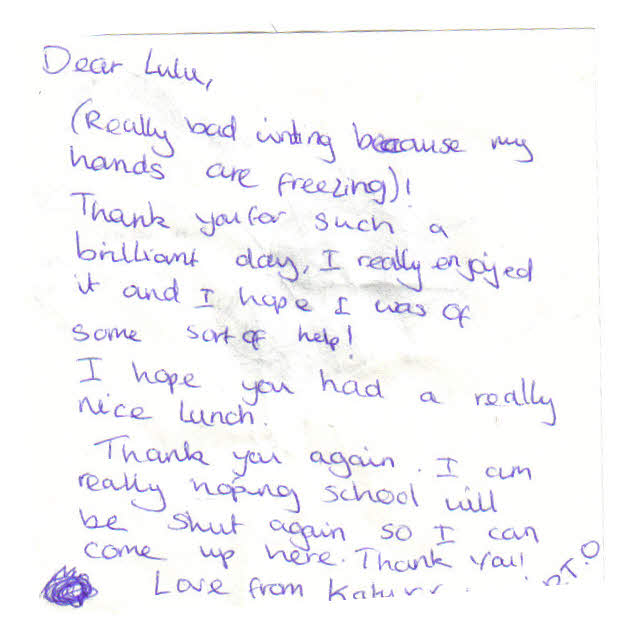 Dear Lulu,
(Really bad writing because my
hands are freezing)!
Thank you for such a
brilliant day, I really enjoyed
it and I hope I was of
some sort of help!
I hope you had a really
nice lunch.
Thank you again. I am
really hoping school will
be shut again so I can
come up here. Thank you!
Love from
P.T.O